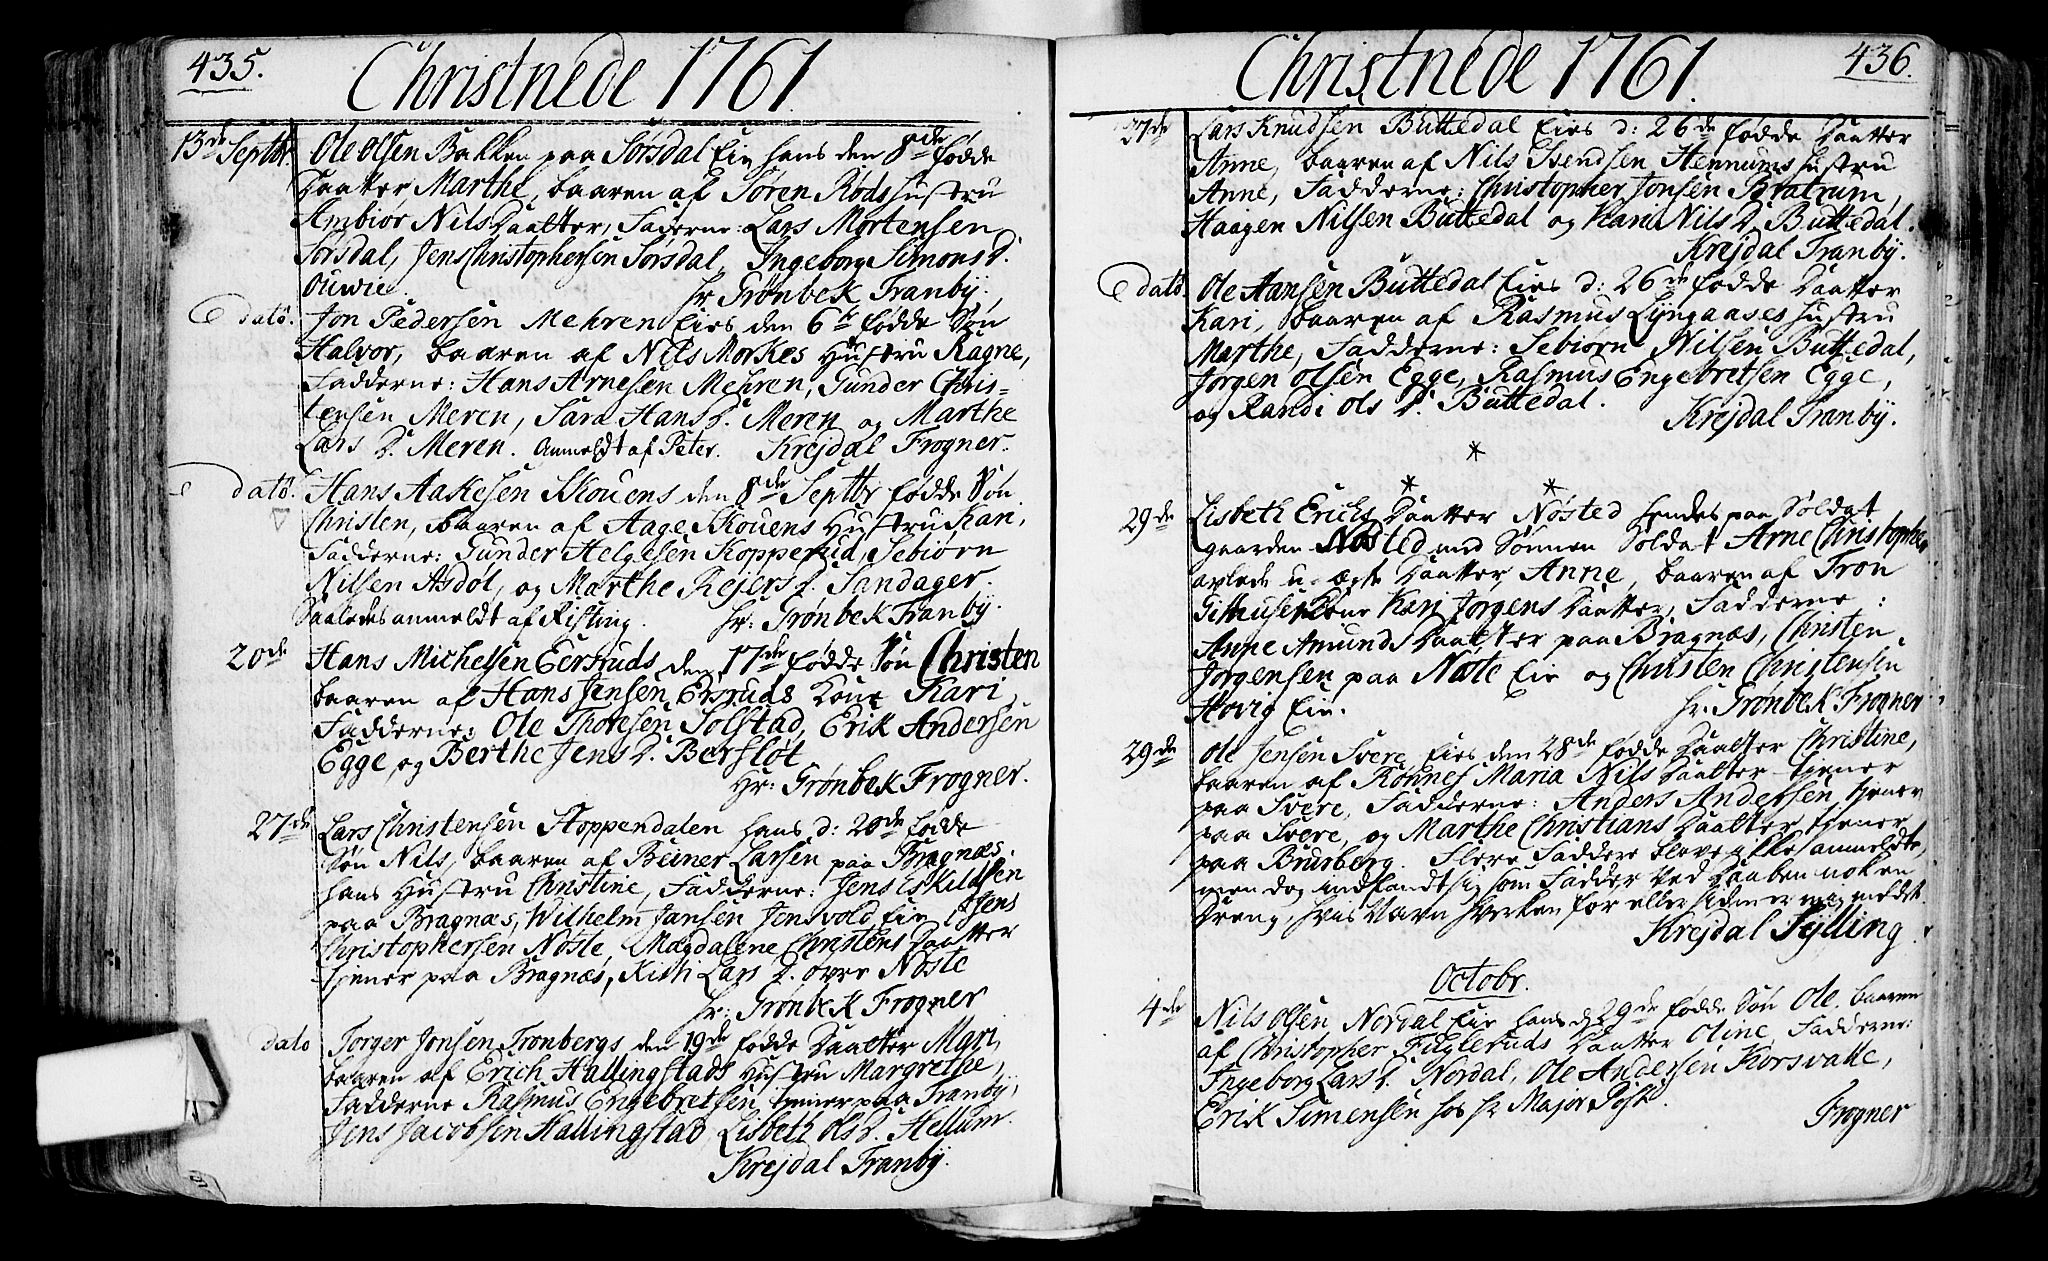 435.
Christnede 1761
13de Septbr. Ole Olsen Bakken paa Sørsdal Eie hans den 8de fødde
Daatter Marthe, baaren af Søren Røds Hustru
Ambiør Nils Daatter, Fadderne: Lars Mortensen
Sørsdal, Jens Christophersen Sørsdal, Ingeborg Simons D.
Ouwie. hr Grønbek Tranby.
dato. Jon Pedersen Mehren Eies den 6te fødde Søn
Halvor, baaren af Nils Morkes Hustru Ragne,
Fadderne: Hans Arnesen Mehren, Gunder Chris-
tensen Meren, Sara Hans D. Meren og Marthe
Lars D. Meren. Anmeldt af Peter. Krejdal Frogner.
dato. Hans Aakesen Skouens den 8de Septbr fødde Søn
Christen, baaren af Aage Skouens Hustru Kari,
Fadderne: Gunder Helgesen Kopperud, Sebiørn
Nilsen Asdøl, og Marthe Rejers D. Sandager.
Saaledes anmeldt af Risting. hr: Grønbek Tranby.
20de Hans Michelsen Eersruds den 17de fødde Søn Christen
baaren af Hans Jensen Ersruds Kone Kari,
Fadderne: Ole Thoresen Solstad, Erik Andersen
Egge, og Berthe Jens D. Berfløt
Hr: Grønbek Frogner.
27de Lars Christensen Stoppendalen hans d: 20de fødde
Søn Nils, baaren af Beiner Larsen paa Bragnæs
hans Hustru Christine, Fadderne: Jens Eskildsen
paa Bragnæs, Wilhelm Jansen Jensvold Eie, Jens
Christophersen Nøste, Magdalene Christens Daatter
tjener paa Bragnæs, Kisti Lars D. øvre Nøste
hr: Grønbek Frogner
dato Torger Jonsen Tronbergs den 19de fødde Daatter Mari,
baaren af Erich Hallingstads Hustru Margrethe,
Fadderne Rasmus Engebretsen tjener paa Tranby,
Jens Jacobsen Hallingstad, Lisbeth Ols D. Hellum.
Krejdal Tranby.
436.
Christnede 1761.
27de Lars Knudsen Buttedal Eies d: 26de fødde Daatter
Anne, baaren af Nils Svendsen Hennums Hustru
Anne, Fadderne: Christopher Jonsen Bratrum,
Haagen Nilsen Buttedal og Kari Nils D. Buttedal.
Krejdal Tranby.
dato Ole Hansen Buttedal Eies d: 26de fødde Daatter
Kari, baaren af Rasmus Lyngaases Hustru
Marthe, Fadderne: Sebiørn Nilsen Buttedal,
Jørgen Olsen Egge, Rasmus Engebretsen Egge,
og Randi Ols D. Buttedal. Krejdal Tranby.
*
* *
29de Lisbeth Erichs Daatter Nøsted hendes paa Soldat
gaarden Nøsted med Sønnen Soldat Arne Christopher
avlede u-ægte Daatter Anne, baaren af Tron
Githusets Kone Kari Jørgens Daatter, Fadderne:
Anne Amunds Daatter paa Bragnæs, Christen
Jørgensen paa Nøste Eie og Christen Christensen
Hovig Eie. hr: Grønbek Frogner
29de Ole Jensen Svere Eies den 28de fødde Daatter Christine,
baaren af Kohnes Maria Nils Daatter tjener
paa Svere, Fadderne: Anders Andersen tjener
paa Svere, og Marthe Christians Daatter tjener
paa Brurberg. Flere Faddere bleve ikke anmeldte,
men dog indfandt sig som Fadder ved Daaben nok en
Dreng, hvis Navn hverken før eller siden er mig meldt.
Krejdal Sylling
Octobr.
4de Nils Olsen Nordal Eie hans d. 29de fødde Søn Ole, baaren
af Christopher Fugleruds Daatter Oline, Fadderne:
Ingeborg Lars D. Nordal, Ole Andersen Korsvatte,
Erik Simensen hos hr Major Post.
Frogner